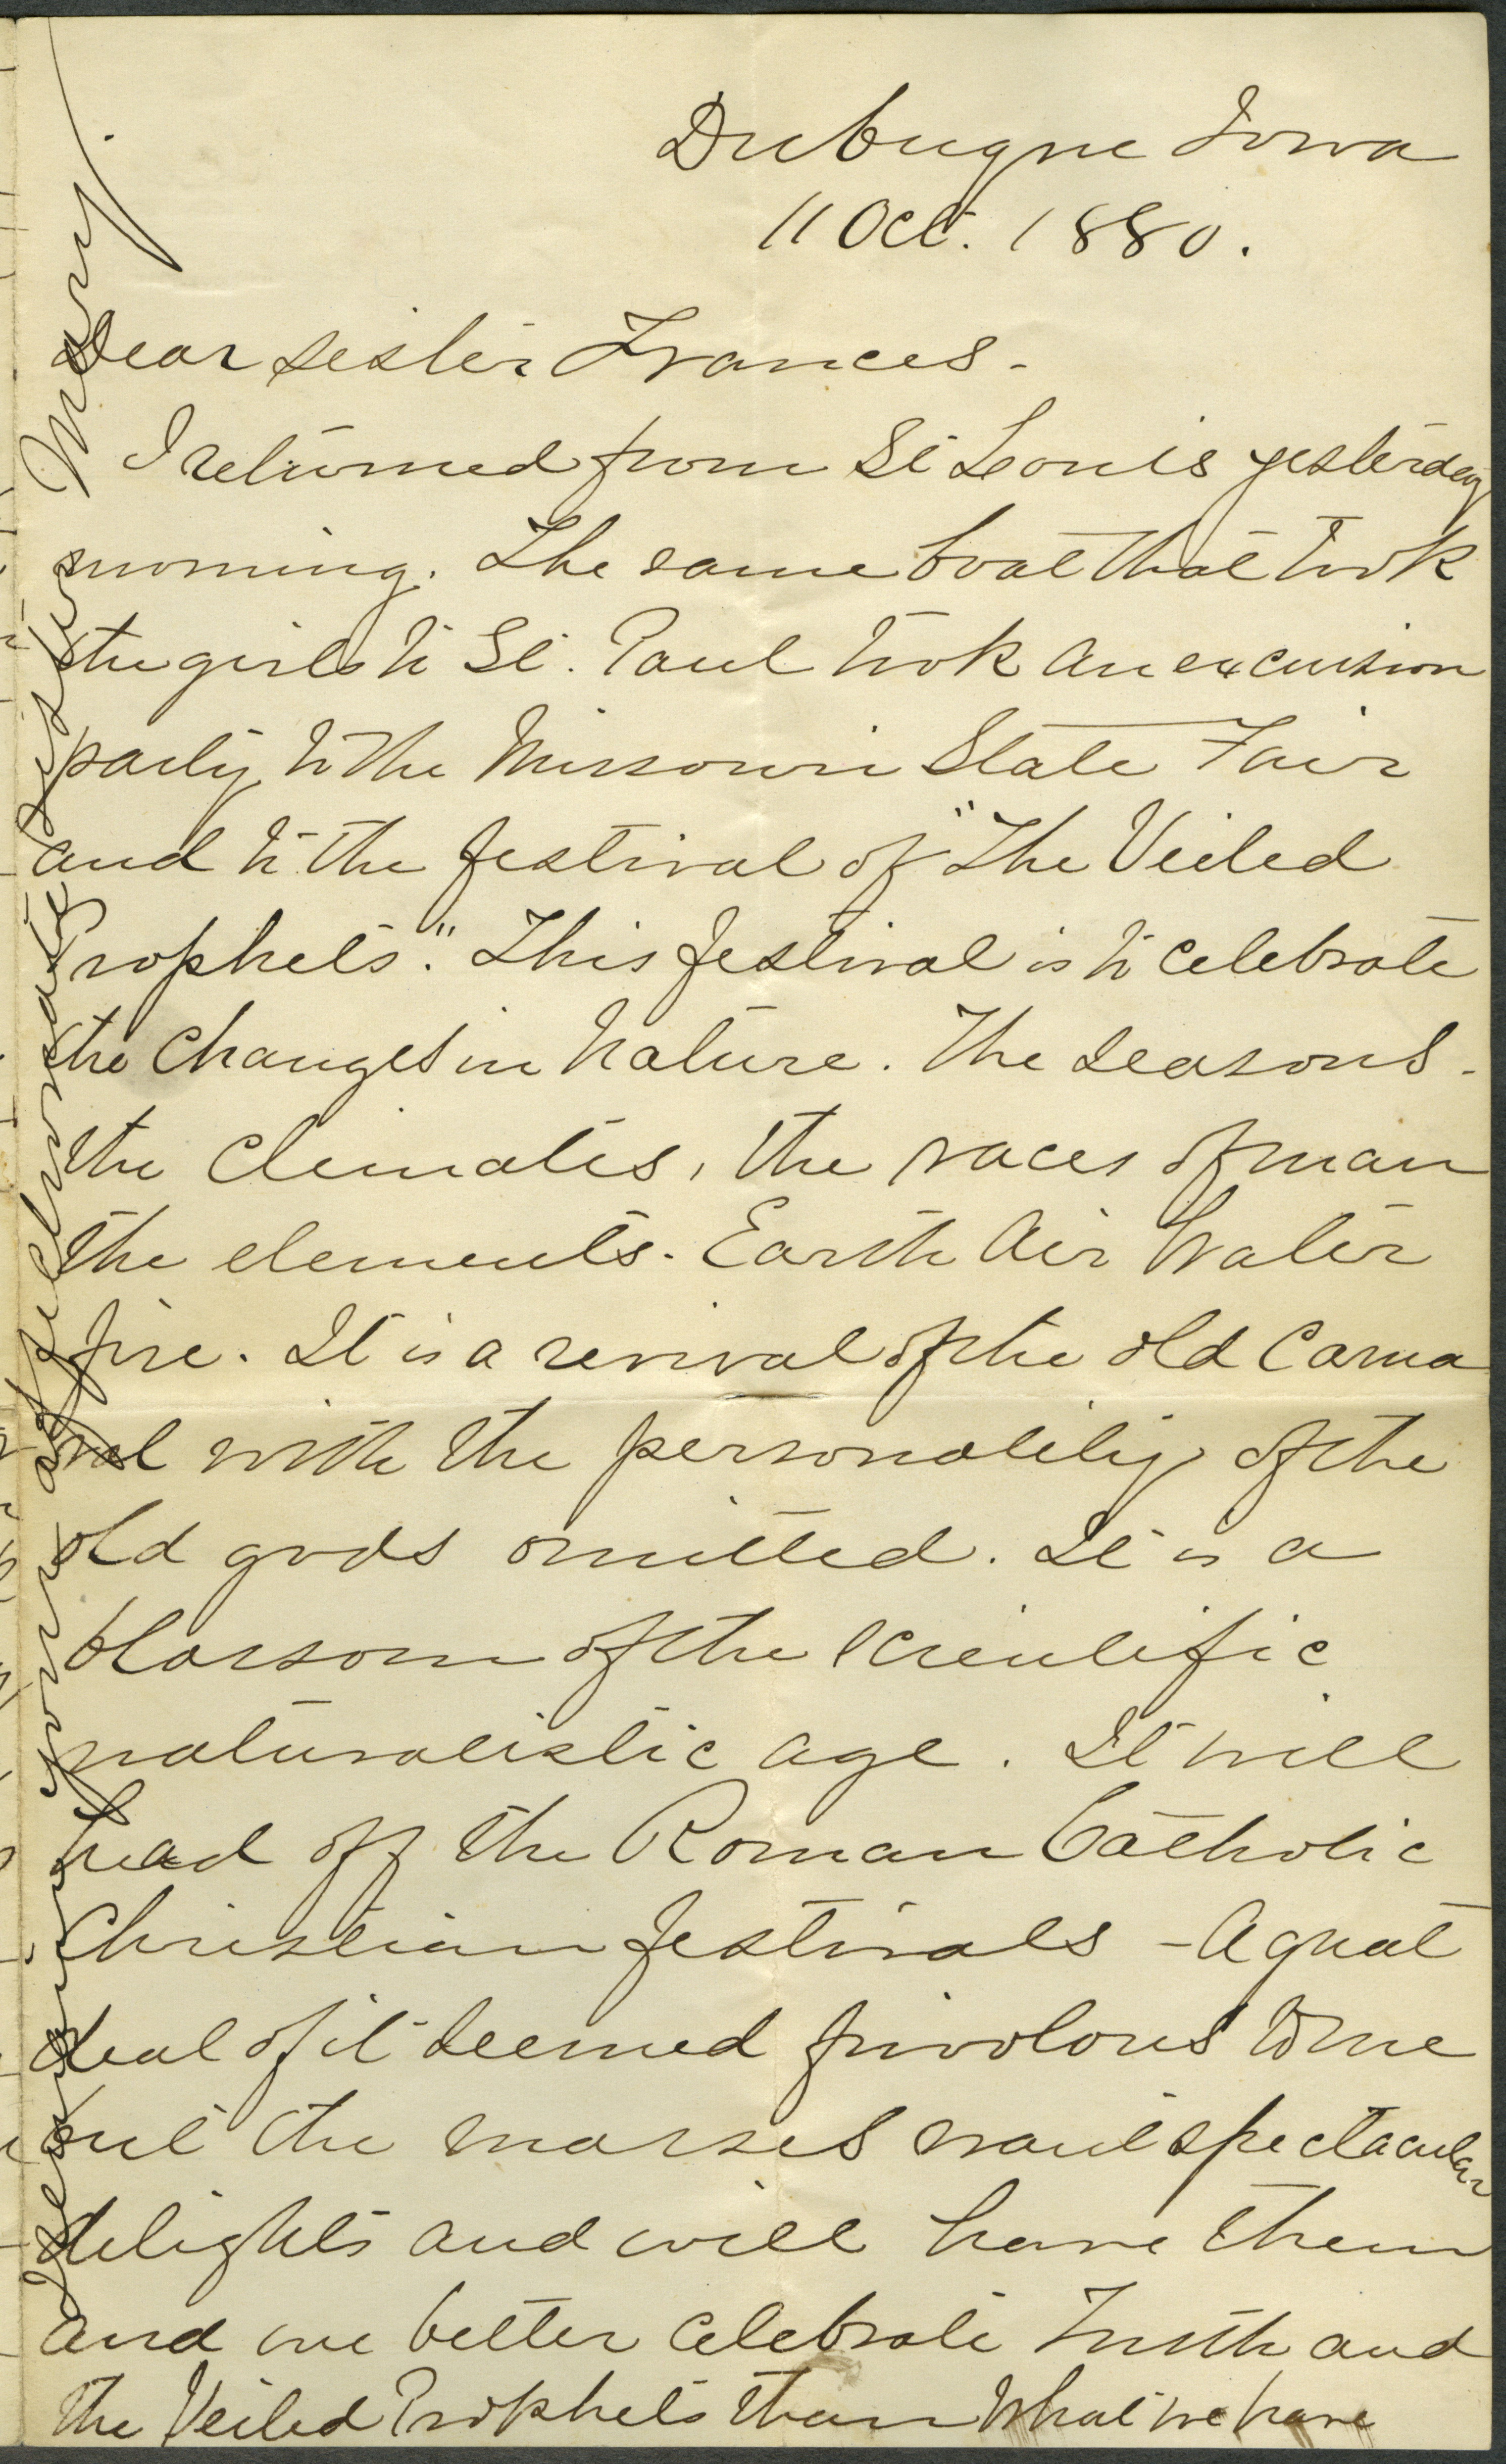 Dubuque Iowa
11 Oct. 1880.
Dear sister Frances -
I returned from St Louis yesterday
morning. The same boat that took
the girls to St. Paul took an excursion
party to the Missouri State Fair
and to the festival of "The Veiled
Prophets." This festival is to celebrate
the changes in Nature. The seasons -
the climates, the races of man
the elements - Earth Air Water
fire. It is a revival of the old Carna
val with the personality of the
old gods omitted. It is a
blossom of the scientific
naturalistic age. It will
head off the Roman Catholic
Christian festivals - A great
deal of it seemed frivolous to me
but the masses want spectacular
delights and will have them
and we better celebrate Truth and
the Veiled Prophets than what we have
yours affectionately
Sister Mary.